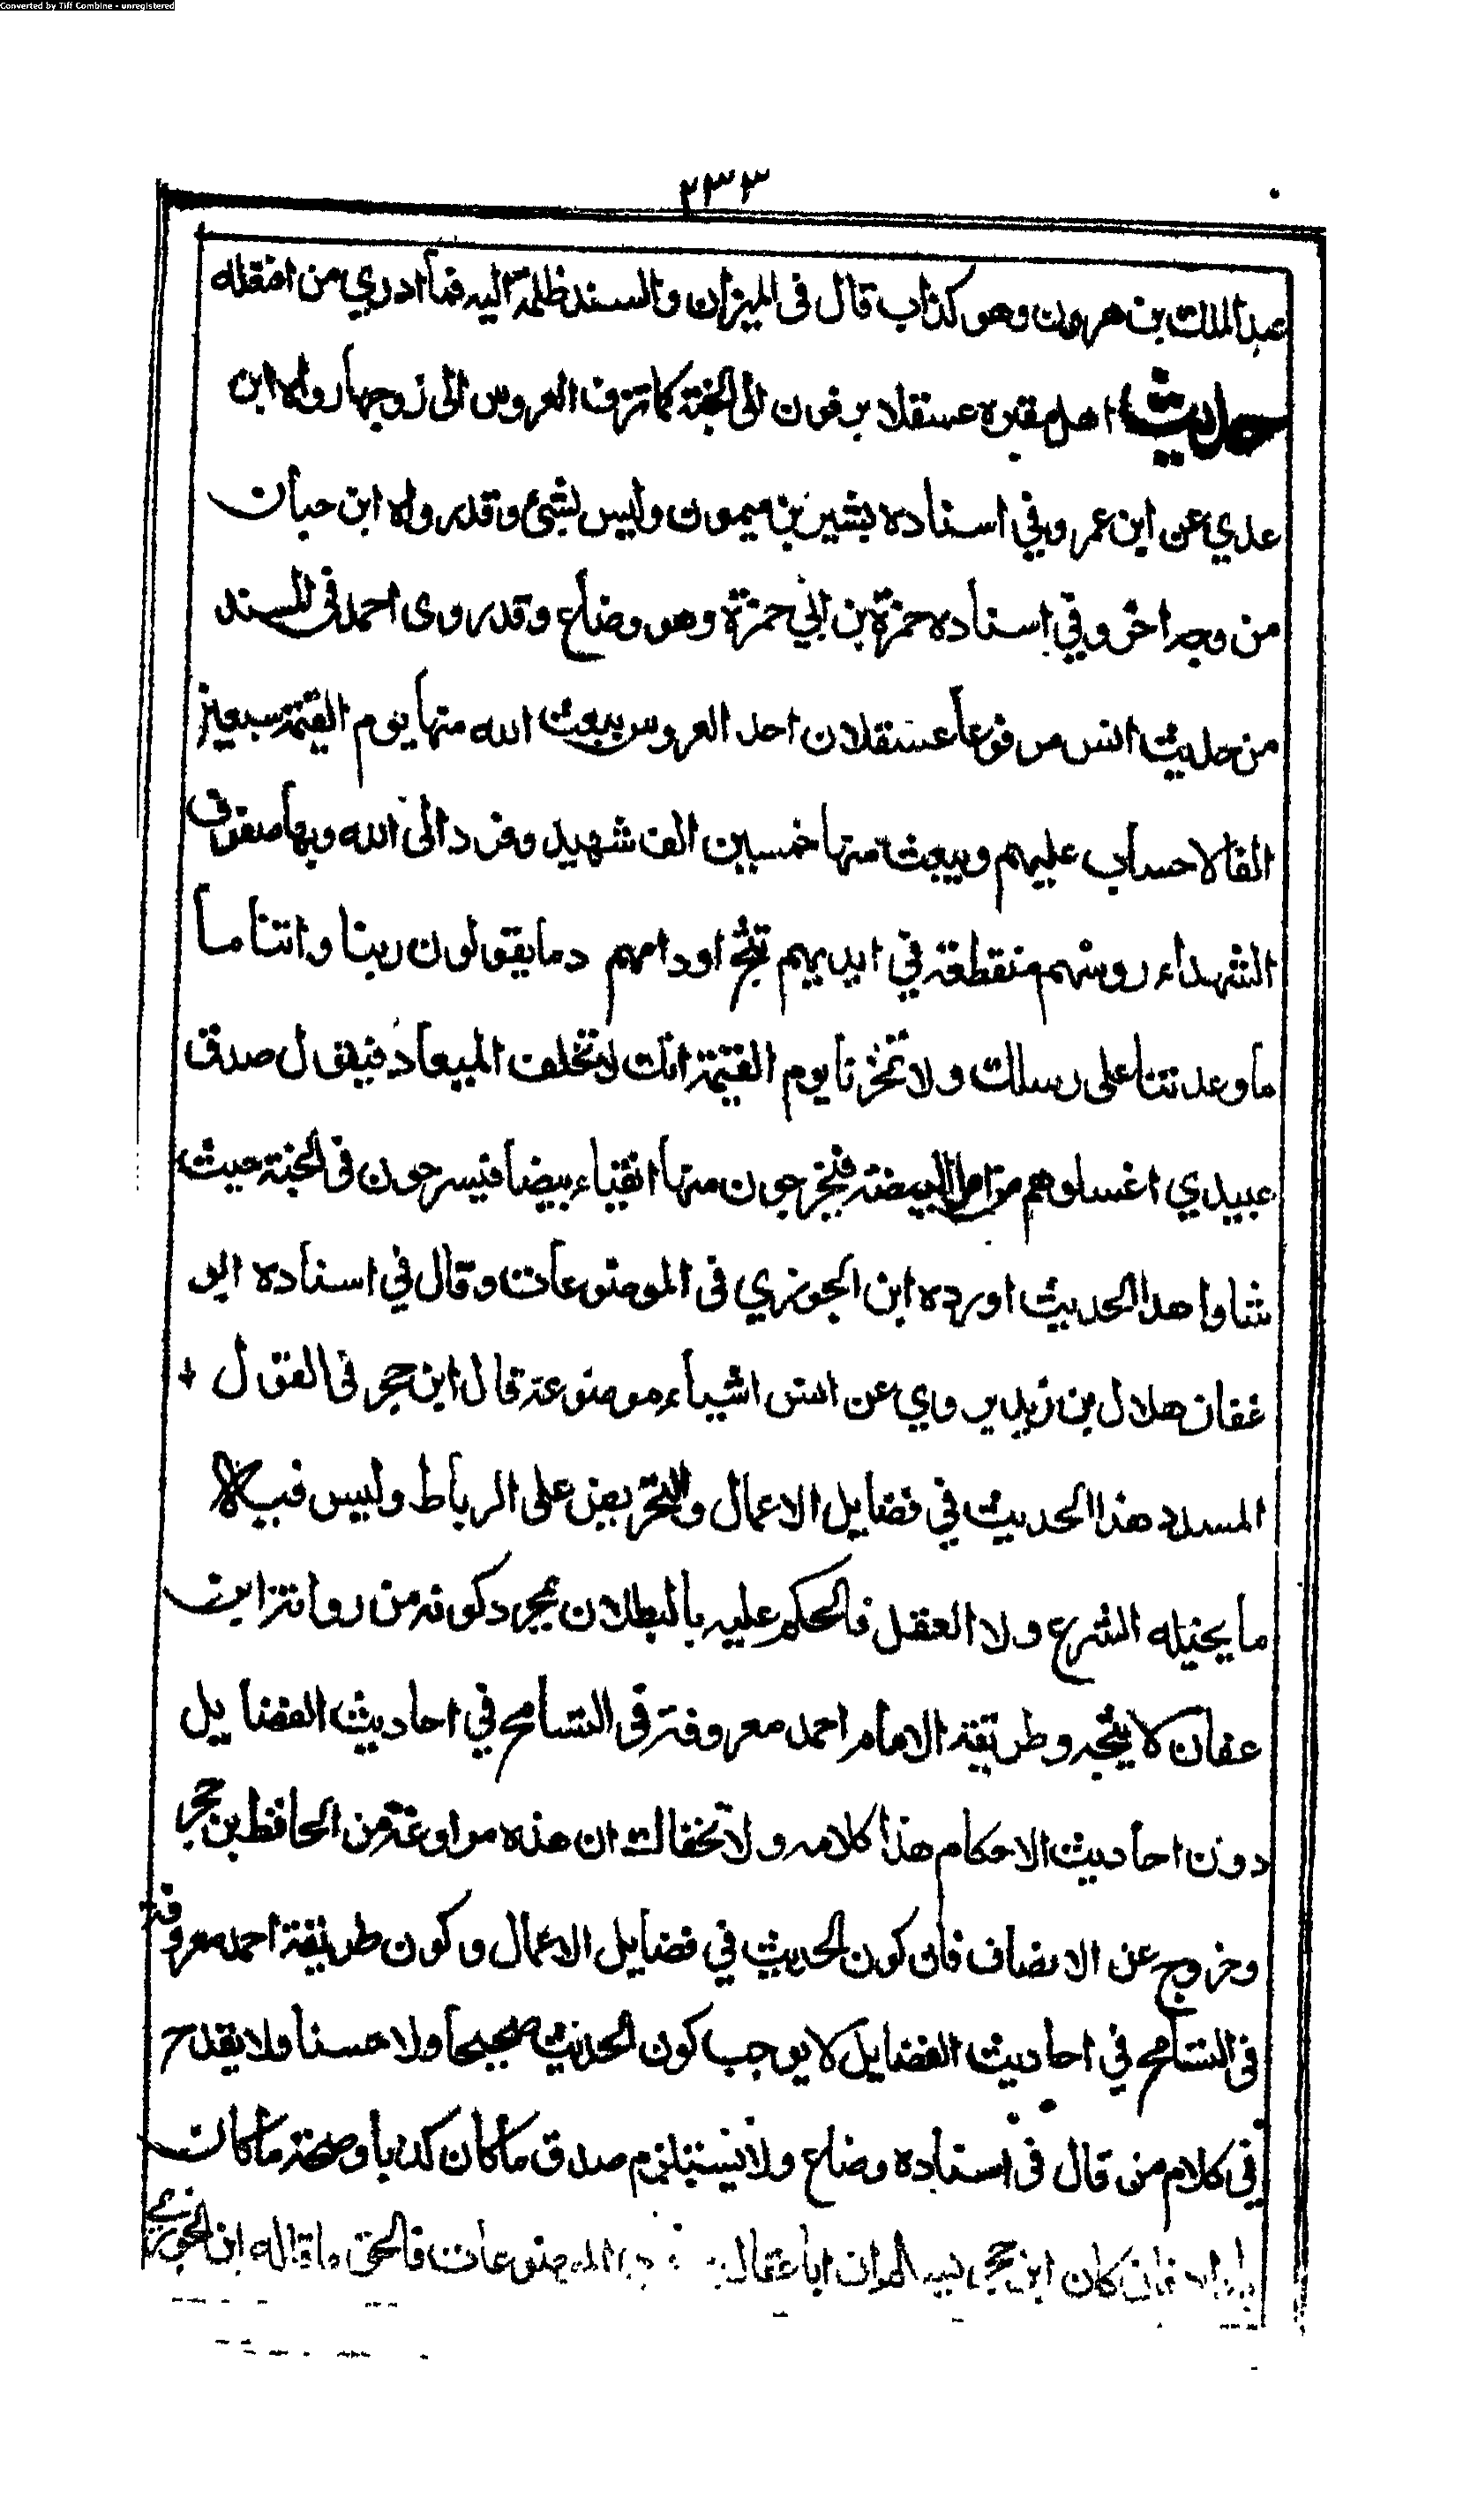 Converted by Tiff Combine - unregistered
٢٣٣
عبد الملك بن هرون وهو كذاب قال فى الميزان والسند ظلمة اليه فما ادري من افتعله
حديث اهل مقبرة عسقلان يزفون الى الجنة كما تزف العروس الى زوجها رواه ابن
عدي عن ابن عمر وفي اسناده بشير بن ميمون وليس بشئ وقد رواه ابن حبان
من وجه اخر وفي اسناده حمزة بن ابي حمزة وهو وضاع وقد روى احمد فى المسند
من حديث انس مرفوعا عسقلان احد العروس يبعث الله منها يوم القيمة سبعين
الفا لا حساب عليهم ويبعث منها خمسين الف شهيد وفردا الى الله وبها صفوف
الشهداء روسهم منقطعة في ايديهم تثج اوداجهم دما يقولون ربنا واتنا ما
ما وعدتنا على رسلك ولا تخزنا يوم القيمة انك لا تخلف الميعاد فيقول صدق
عبيدي اغسلوهم من البيضة فيخرجون منها انقياء بيضا فيسرحون فى الجنة حيث
شاوا هذا الحديث اورده ابن الجوزي فى الموضوعات وقال في اسناده ابو
عفان هلال بن زيد يروي عن انس اشياء موضوعة قال ابن حجر فى القول
المسدد هذا الحديث في فضايل الاعمال والتحريض على الرباط وليس فيه
ما يحيله الشرع ولا العقل فالحكم عليه بالبطلان بمجرد كونه من رواية ابي
عفان لا يتجه وطريقة الامام احمد معروفة فى التسامح في احاديث الفضايل
دون احاديث الاحكام هذا كلامه ولا يخفاك ان هذه مراوغة من الحافظ بن حجر
وخروج عن الانصاف فان كون الحديث في فضايل الاعمال وكون طريقة احمد معروفة
فى التسامح في احاديث الفضايل لا يوجب كون الحديث صحيحا ولا حسنا ولا يقدح
في كلام من قال فى اسناده وضاع ولا يستلزم صدق ما كان كذبا وصحة ما كان
فان كان ابن حجر الموضوعات فالحق ما قاله ابن الجوزي